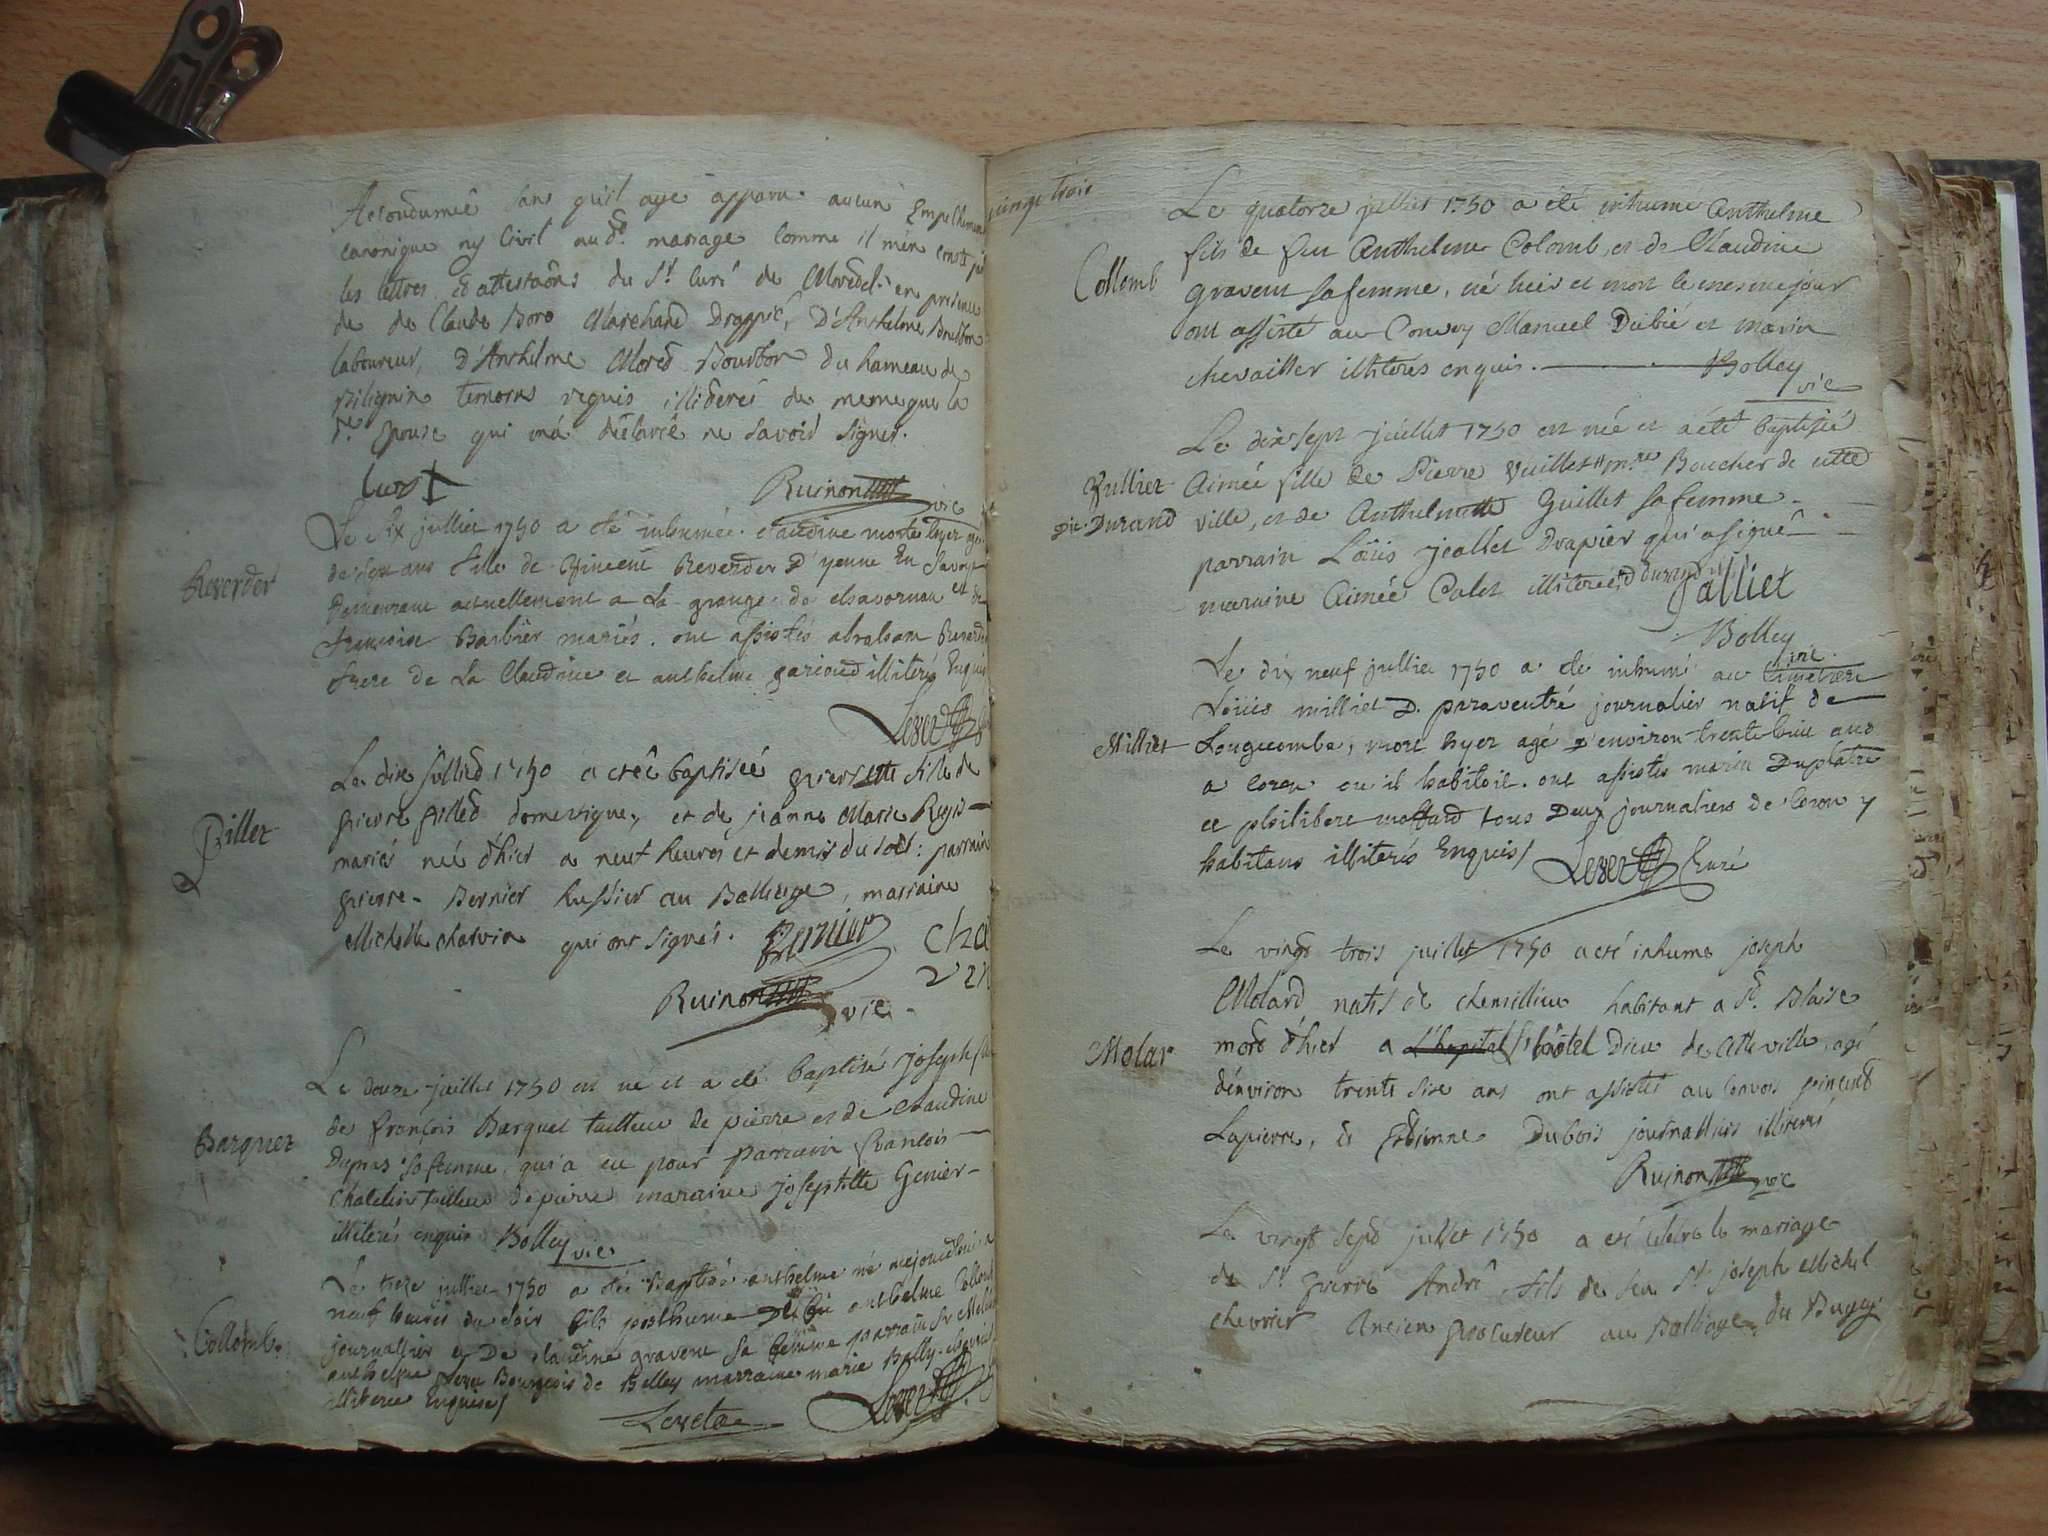 Accoudumée sans qu'il aye apparu aucun Empeschement
canonique ny Civil au dt. mariage comme il m'en conste par
les lettres et attestaons du Sr. Curé de en presence
de de Claude Boro Marchand Drappié, D'Anthelme
laboureur, D'Anthelme Bourbon du hameau de
Bilignin temoins requis illiderés de meme que la
de. Epouse qui m'a déclaré ne savoir signer.
Ruinon vic
Le Six jullier 1750 a eté inhumée claudine morte hyer
de Sept ans fille de Vincent Reverder d'yenne En Savoye
Reverder
Demeurant actuellement a La grange de et de
francoise Barbier mariés. ont assistés abraham
frere de La Claudine et anthelme illiterés Enquis
Le dix Julliet 1750 a eteé baptisée pierrette fille de
pierre pilled domestique, et de jeanne Marie Regis
Pillet
mariés née d'hier a neuf heures et demis du soir: parrain
pierre Bernier hussier au Balliage, marraine
Michelle charvin qui ont signés. Bernier cha
Ruinon vic. vin
Le douze juillet 1750 est né et a eté baptisé joseph fils
de François Barquet tailleur de pierre et de claudine
Barquet
Dupras sa femme, qui a eu pour parrain francois
Chatelain tailleur de pierre maraine josephtte Genier
illiterés enquis Bolley vic
Le treze jullier 1750 a été Baptisé anthelme né aujourdhui a
neuf heures du soir fils posthume De feu anthelme Collomb
Collomb.
journallier et De claudine gravent sa femme parrain Sr
anthelme Bourgeois de Belley marraine marie Bally
illiteree Enquise/
vingt trois
Le quatorze julliet 1750 a été inhume Anthelme
fils de feu Anthelme Colomb, et de Claudine
Collomb
gravent sa femme, né hier et mort le mesme jour
ont assisté au Convoy Manuel Dubié et marin
chevailler illiteres enquis. Bolley
vic
Le dix sept juillet 1750 est née et a été baptisée
Vulliet Aimée fille de Pierre Vuillet mre Boucher de cette
Dit Durand ville, et de Anthelmette Guillet sa femme
parrain Loüis jcallet Drapier qui a signé
maraine Aimée Calet illiterée, d durand Jalliet
Bolley
vic.
Le dix neuf jullier 1750 a été inhumé au Cimetiere
Loüis milliet D. paraventré journalier natif de
Milliet Longecombe, mort hyer agé d'environ trente huit ans
a coron ou il habitoit. ont assistés marin Duplatre
et philibert moffard tous Deux journaliers de Coron y
habitans illiterés Enquis/ Curé
Le vingt trois juillet 1750 a eté inhume joseph
Molard, natif de chemillieu habitant a St. Blaise
Molar mort d'hier a L'hopital l'hôtel Dieu de cette ville, agé
d'environ trente sixe ans ont assistés au convois
Lapierre, et Estienne Dubois journalliers illiterés
Ruinon vic
Le vingt sept juillet 1750 a eté celebre le mariage
de Sr. pierre André fils de feu Sr. joseph Michel
chevrier Ancien procureur au Balliage du Bugey